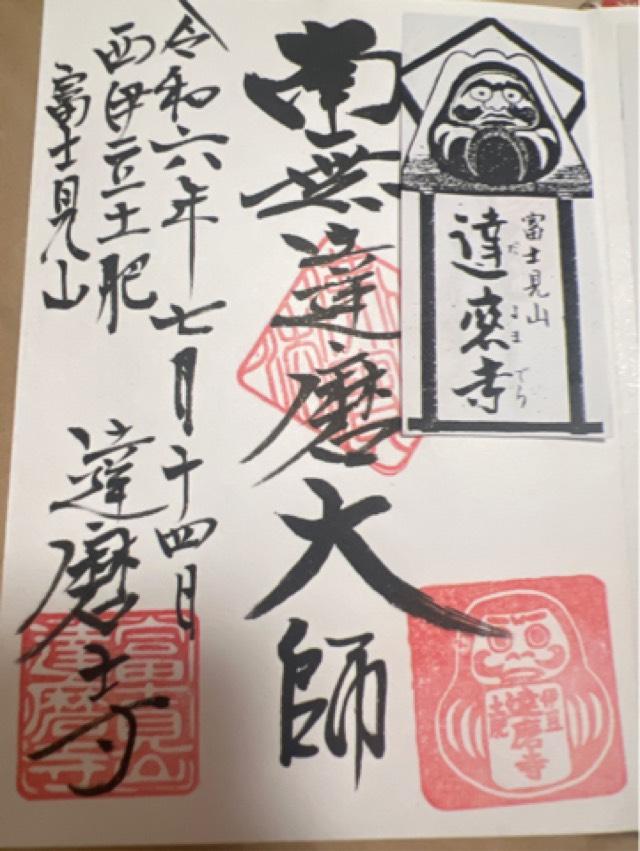 富士見山
達磨寺
だるまでら
南無達磨大師
令和六年七月十四日
西伊豆土肥
富士見山
達磨寺
伊豆
土肥
達磨寺
富士見山
達磨寺